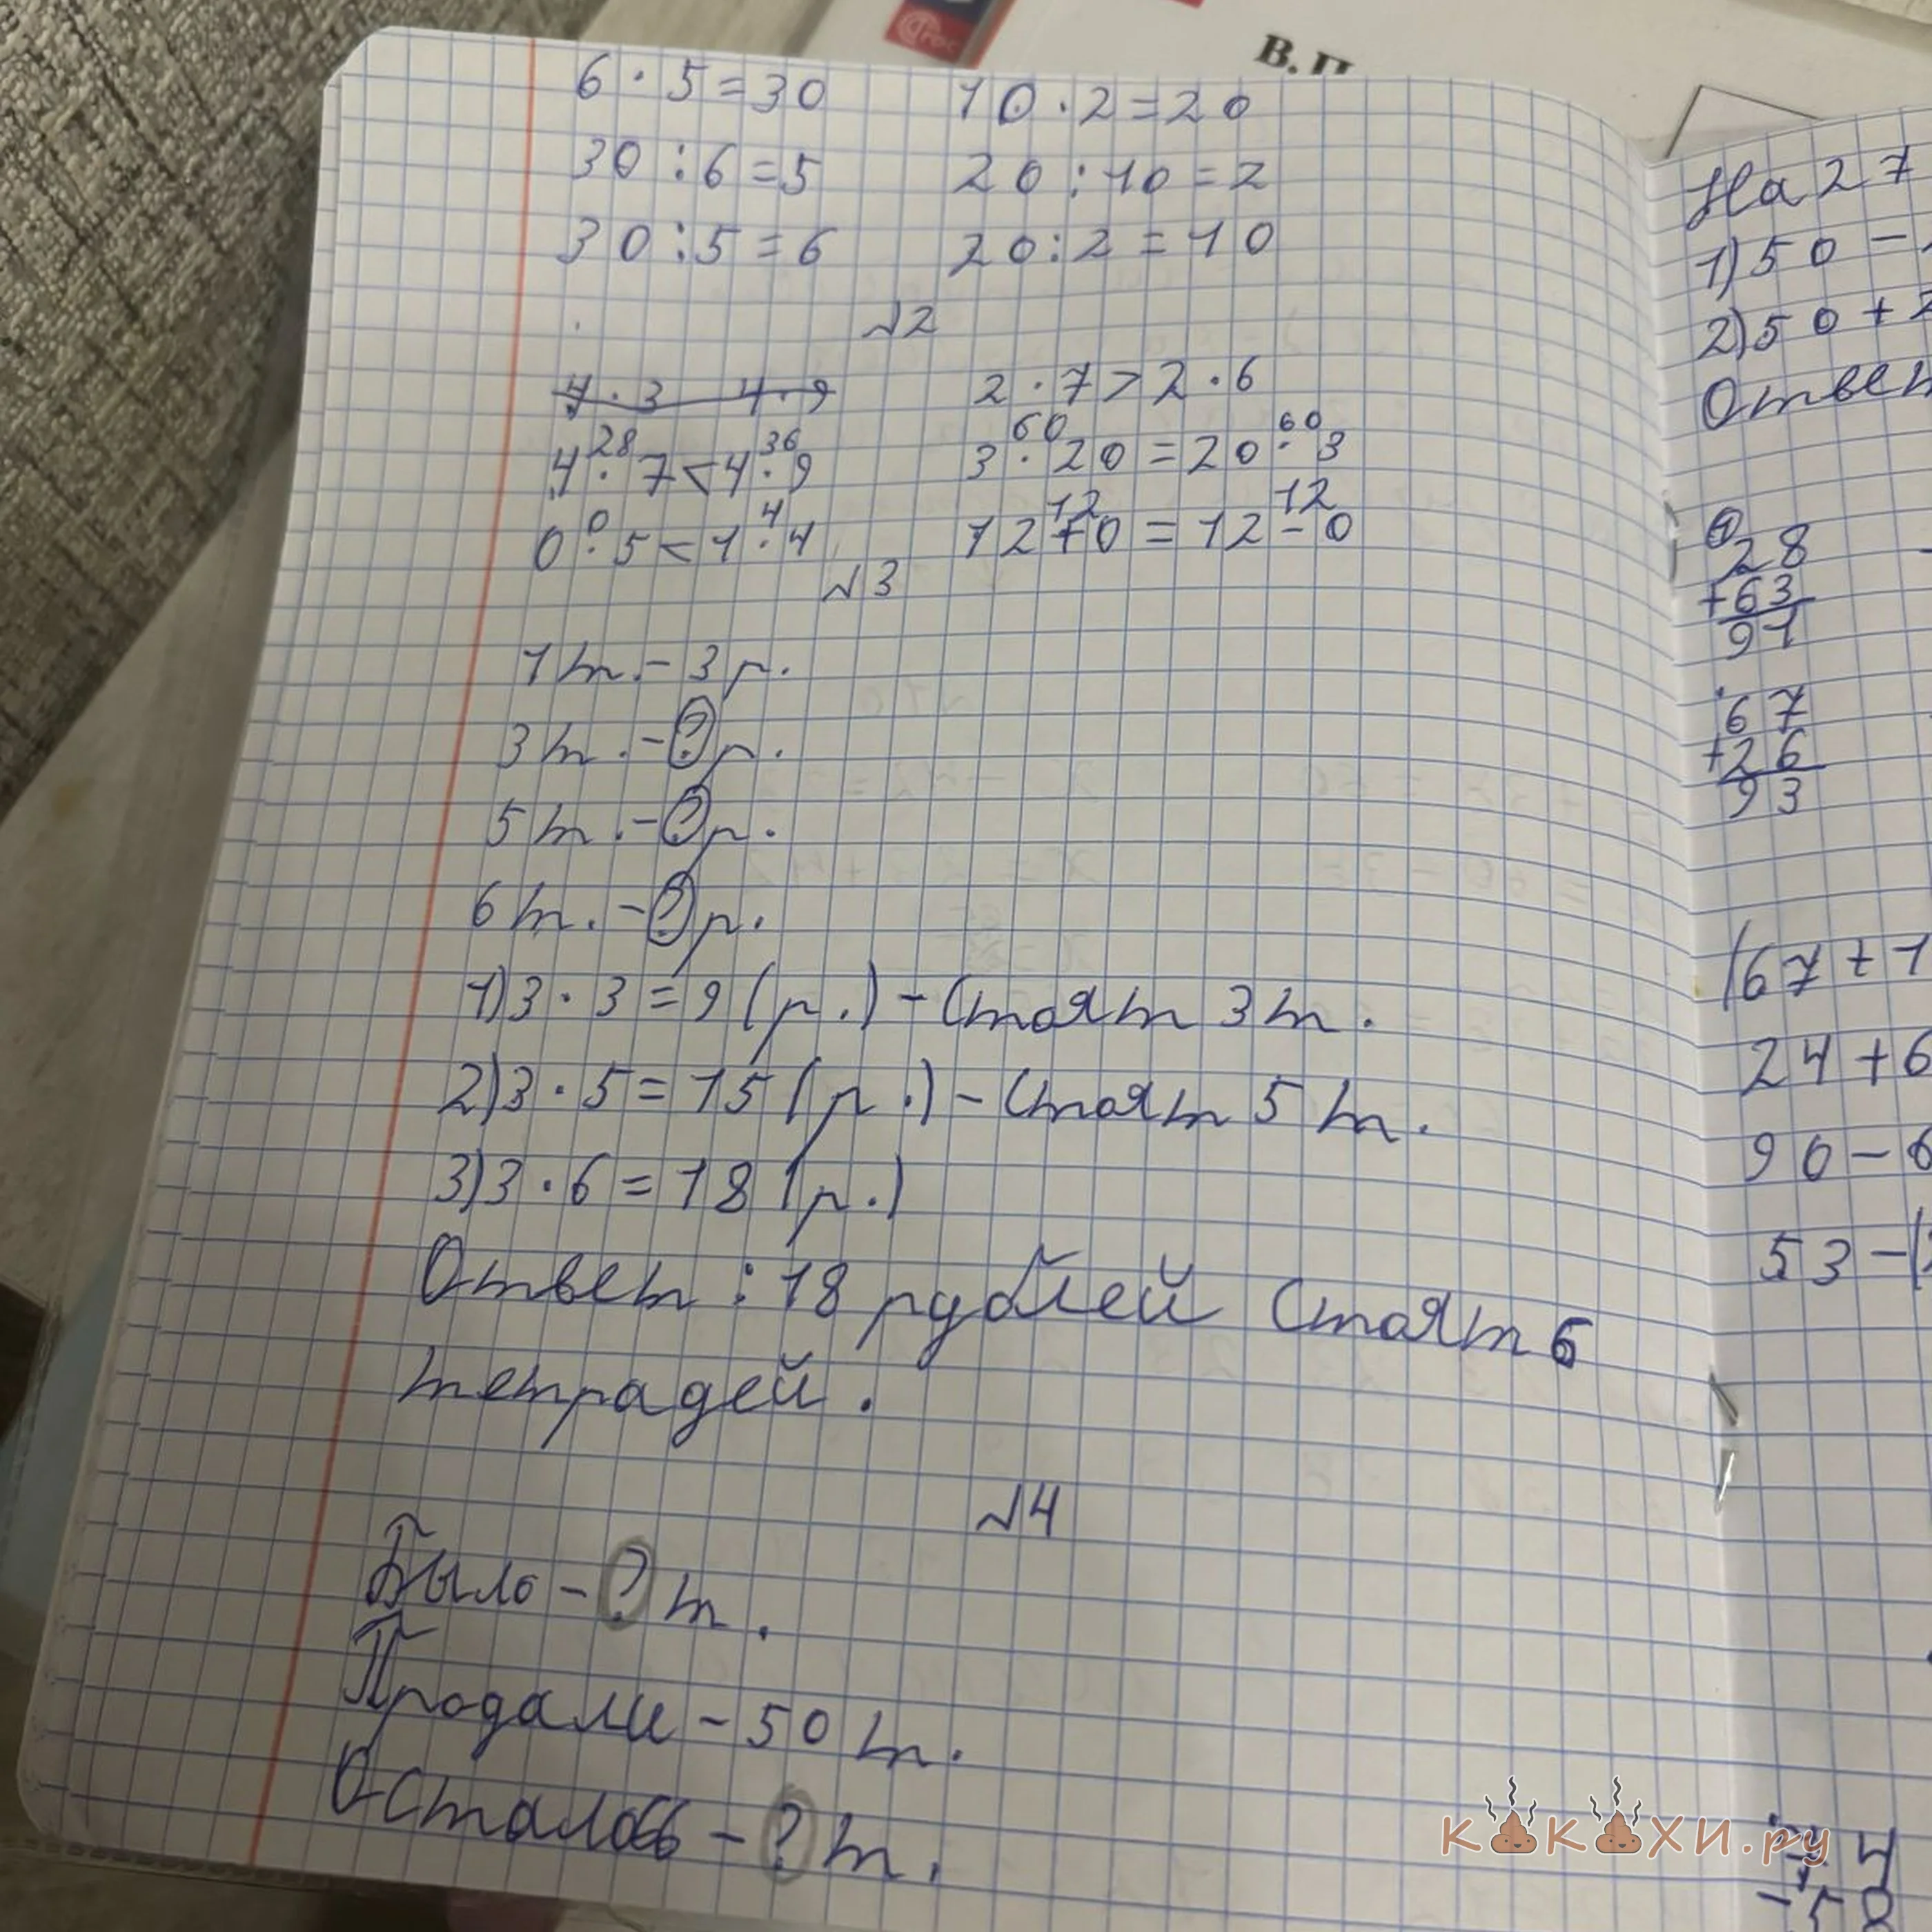 В. П
6 · 5 = 30 10 · 2 = 20
30 : 6 = 5 20 : 10 = 2
30 : 5 = 6 20 : 2 = 10
№2
4 · 3 4 · 9 2 · 7 > 2 · 6
28 36 60 60
4 · 7 < 4 · 9 3 · 20 = 20 · 3
0 4 12 12
0 · 5 < 1 · 4 12 + 0 = 12 - 0
№3
1 т. - 3 р.
3 т. - ? р.
5 т. - ? р.
6 т. - ? р.
1) 3 · 3 = 9 (р.) - стоят 3 т.
2) 3 · 5 = 15 (р.) - стоят 5 т.
3) 3 · 6 = 18 (р.)
Ответ : 18 рублей стоят 6
тетрадей.
№4
Было - ? т.
Продали - 50 т.
Осталось - ? т.
На 27
1) 50 -
2) 50 +
Ответ
1
28
+ 63
91
67
+ 26
93
(67 + 1
24 + 6
90 - 6
53 - (
КАКАХИ.ру